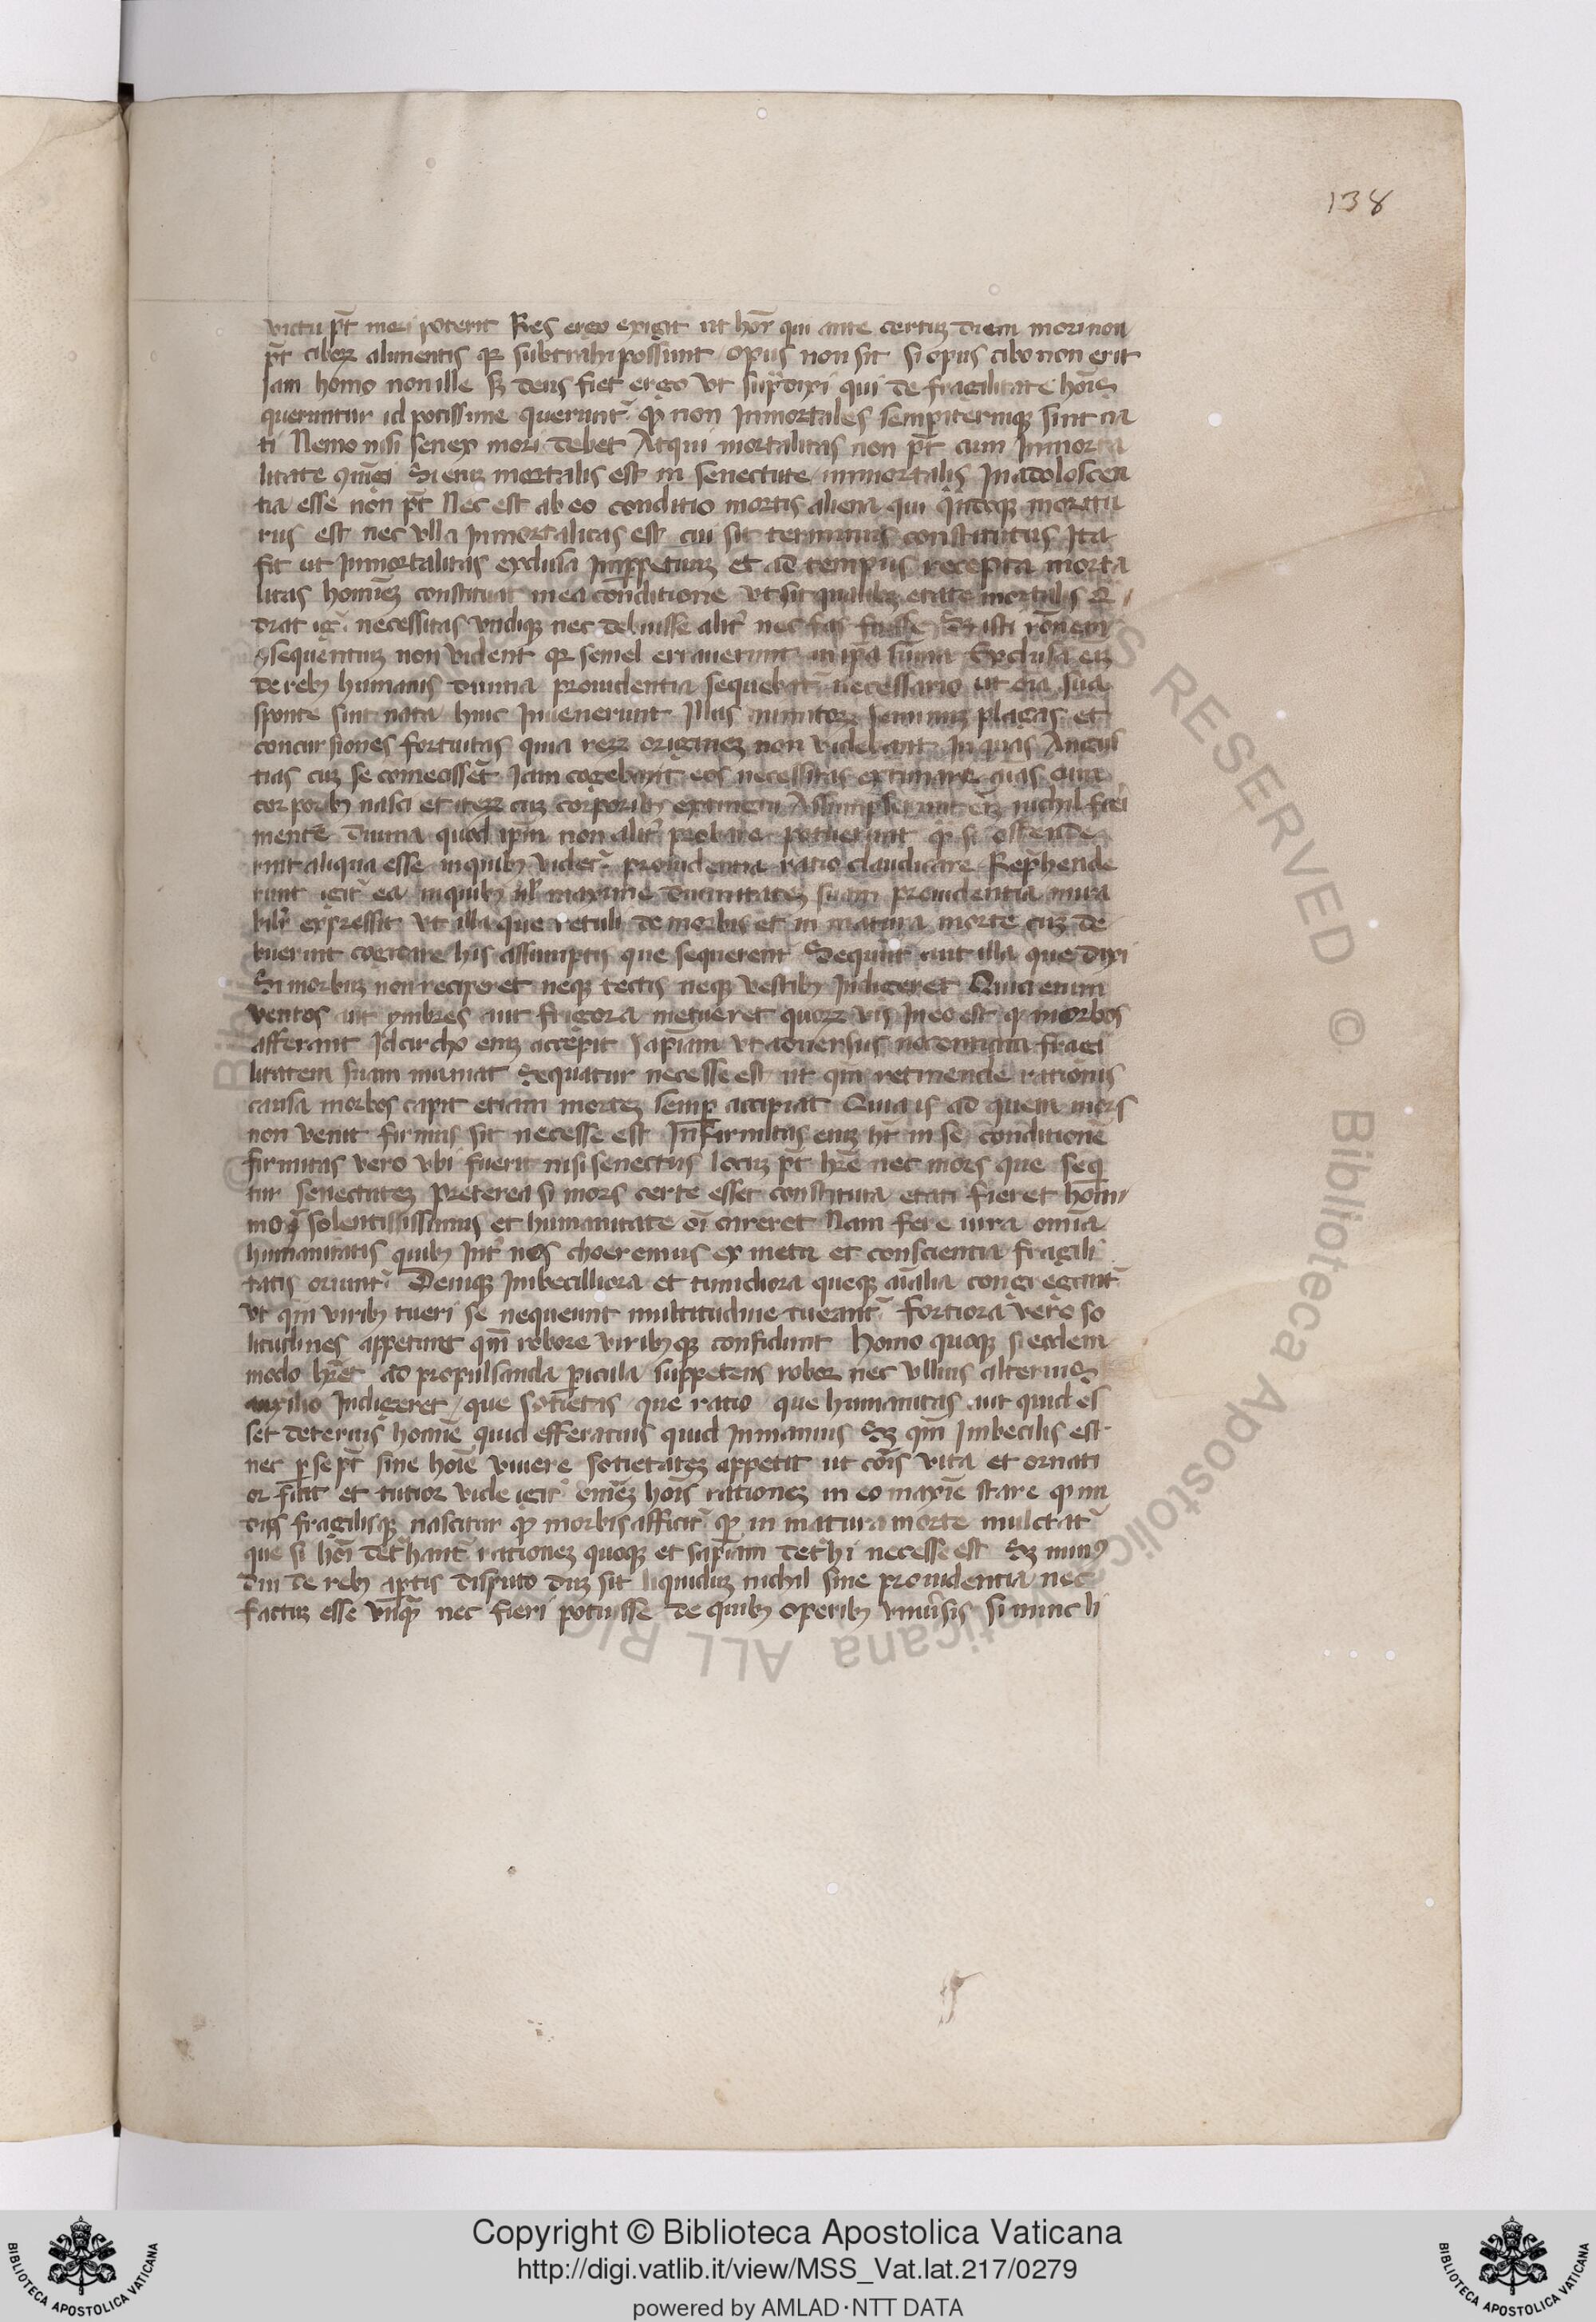 138
victu pt̄ mori poterit Res ergo exigit ut hōi qui ante certuz diem mori non
pt̄ ciboꝝ alimentis que subtrahi possunt opus non sit si opus cibo non erit
Jam homo non ille sꝫ deus fiet ergo vt sup̄ dixi qui de fragilitate hōis
queruntur id potissime querunt᷑ ꝙ non Inmortales sempiterniqꝫ sint na
ti Nemo nisi senex mori debet Atqui mortalitas non pt̄ cum Inmorta
litate ꝯiūgi Si enīz mortalis est in senectute inmortalis In adoloscen
tia esse non pt̄ Nec est ab eo conditio mortis aliena qui qn̄doqꝫ moritu
rus est nec vlla Inmortalitas est cui sit terminus constitutus Ita
fit ut Inmortalitas exclusa Imꝑpetuuz et ad tempus recepta morta
litas homīeꝫ constituat in ea conditione vt sit qualibꝫ etate mortalis Q
drat ig᷑ necessitas vndiqꝫ nec debuisse alit᷑ nec fas fuisse Sꝫ isti rōnem
ꝯsequentiuꝫ non vident qꝛ semel errauerunt in ip̄a sūma Exclusa enīz
de rebꝫ humanis diuina prouidentia sequebat᷑ necessario ut oīa sua
sponte sint nata hinc Inuenerunt Illas minutoꝝ seminuꝫ plagas et
concursiones fortuitas quia reꝝ origineꝫ non videbant In quas Angus
tias cuꝫ se coniecissēt Jam cogebant eos necessitas extimare aīas cum
corporibꝫ nasci et iteꝝ cuꝫ corporibꝫ extingui Assumpserunt enīz nichil fieri
mente diuina quod ip̄m non alit᷑ probare potuerunt ꝙ si ostende
rint aliqua esse in quibꝫ videt᷑ prouidentia ratio claudicare Rep̄hende
runt igit᷑ ea in quibꝫ ul᷑ maxime diuinitateꝫ suam prouidentia mira
bilit᷑ expressit vt illa que retuli de morbis et in matura morte cuꝫ de
buerint cogitare his assumptis que sequerent᷑ Sequūt᷑ aut illa que dixi
Si morbuꝫ non reciperet neqꝫ tectis neqꝫ vestibꝫ Indigeret Quid enim
ventos aut ymbres aut frigora metueret quoꝝ vis In eo est ꝙ morbos
afferant Idcircho enīz accepit sapīam vt aduersus nocentium fragi
litatem suam muniat Sequatur necesse est ut qm̄ retinende rationis
causa morbos capit etiam morteꝫ semꝑ accipiat Quia is ad quem mors
non venit firmus sit necesse est Infirmitas enīz ht̄ in se conditionē
firmitas vero vbi fuerit nisi senectus locuꝫ pt̄ hr̄e nec mors que seqͥ
tur senectuteꝫ Preterea si mors certe esset constituta etati fieret homi
mo ꝯsolentississimus et humanitate oī careret Nam fere iura omīa
humanitatis quibꝫ Int᷑ nos choeremus ex metu et conscientia fragili
tatis oriunt᷑ Deniqꝫ Imbecilliora et timidiora queqꝫ aīalia congregant᷑
vt qm̄ viribꝫ tueri se nequeunt multitudine tueant᷑ Fortiora vero so
litudines appetunt qm̄ robore viribꝫqꝫ confidunt Homo quoqꝫ si eodem
modo hr̄et ad propulsanda ꝑicula suppetens robor nec vllius alterius
auxilio Indigeret que sotietas que ratio que humanitas aut quid es
set deterius homīe quid efferatius quid Inmanius Sꝫ qm̄ Imbecilis est
nec ꝑ se pt̄ sine hoīe viuere sotietateꝫ appetit ut cōis vita et ornati
or fiat et tutior vide igit᷑ omeꝫ hōis rationeꝫ in eo maxīe stare ꝙ nu
dus fragilisqꝫ nascitur ꝙ morbis afficit᷑ ꝙ in matura morte mulctat᷑
que si hōi det᷑hant᷑ rationeꝫ quoqꝫ et sapīam det᷑hi necesse est Sꝫ nimꝰ
diu de rebꝫ aptis disputo duꝫ sit liquiduꝫ nichil sine prouidentia nec
factuꝫ esse vnqͣꝫ nec fieri potuisse De quibꝫ operibꝫ vniu᷑sis si nunc li
RESERVED © Biblioteca Apostolica Vaticana ALL RIG
Copyright © Biblioteca Apostolica Vaticana
http://digi.vatlib.it/view/MSS_Vat.lat.217/0279
powered by AMLAD·NTT DATA
BIBLIOTECA APOSTOLICA VATICANA
BIBLIOTECA APOSTOLICA VATICANA